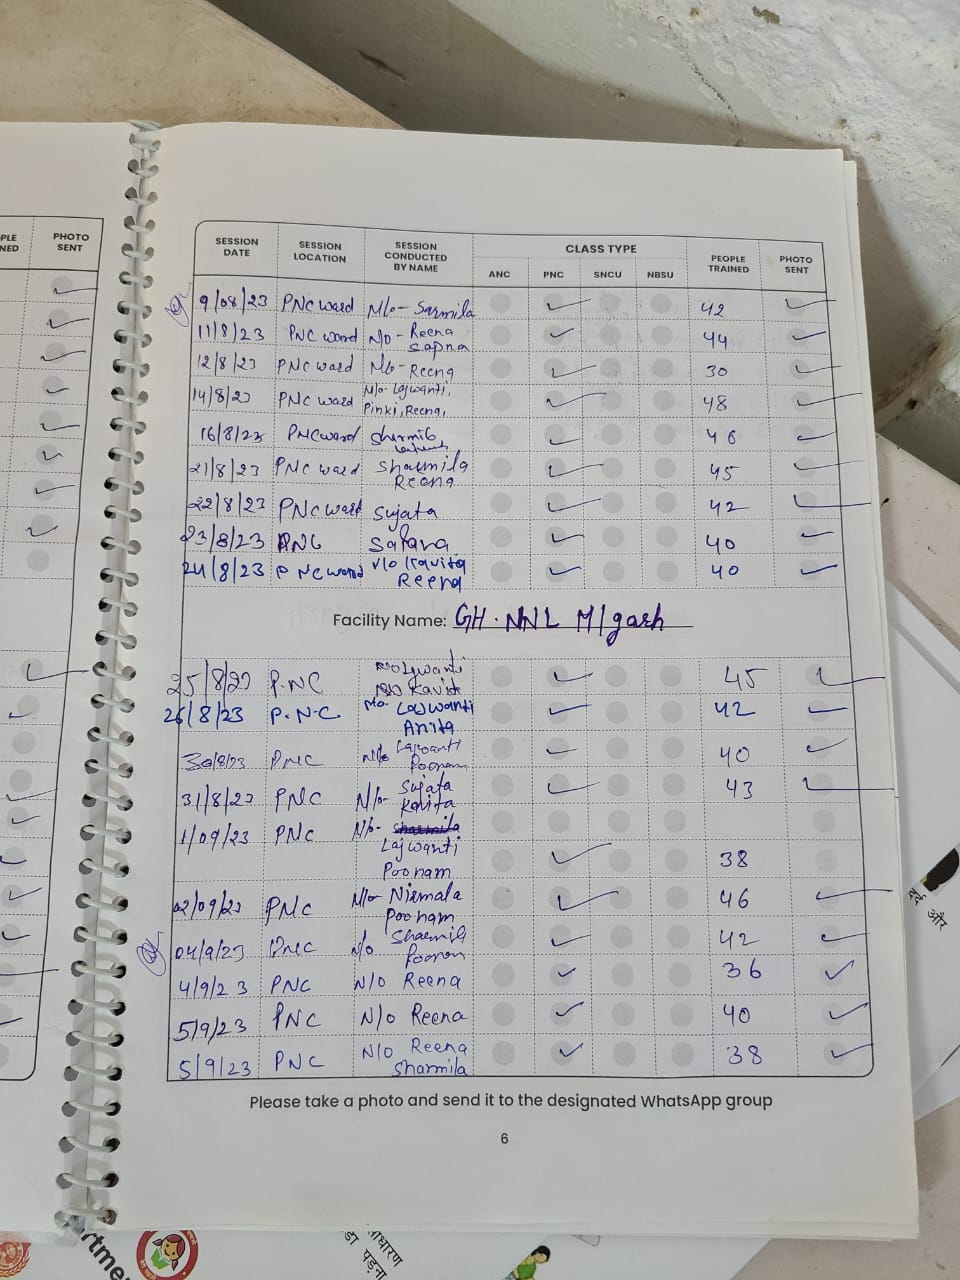 PLE
NED
PHOTO
SENT
SESSION DATE SESSION LOCATION SESSION CONDUCTED BY NAME CLASS TYPE PEOPLE TRAINED PHOTO SENT
ANC PNC SNCU NBSU
9/08/23 PNC ward N/o - Sarmila 42
11/8/23 PNC ward N/o - Reena 44
Sapna
12/8/23 PNC ward N/o - Reena 30
14/8/23 PNC ward N/o - Lajwanti, 48
Pinki, Reena,
16/8/23 PNC ward 46
21/8/23 PNC ward Sharmila 45
Reena
22/8/23 PNC ward Sujata 42
23/8/23 PNC 40
24/8/23 PNC ward N/o Kavita 40
Reena
Facility Name: GH. NNL M/garh
25/8/23 P.NC 45
26/8/23 P.N.C No. Lajwanti 42
Anita
30/8/23 PNC N/o Lajwanti 40
Poonam
31/8/23 PNC N/o- Sujata 43
Kavita
1/09/23 PNC N/o- Sharmila
Lajwanti 38
Poonam
02/09/23 PNC N/o Nirmala 46
Poonam
04/9/23 PNC N/o Sharmila 42
Poonam
4/9/23 PNC N/O Reena 36
5/9/23 PNC N/O Reena 40
5/9/23 PNC N/O Reena 38
Sharmila
Please take a photo and send it to the designated WhatsApp group
6
दर्द और
साधारण
पड़ना